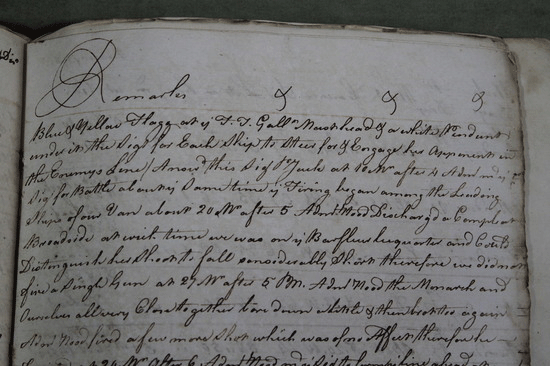 Remarks & & &
Blue & Yellow Flagg at ye F. T. Gallt Masthead & a white Pendant
under it the Sigl for Each Ship to Steer for & Engage his Opponent in
the Enemys Line / Amaid this Sigl Pr Jack at 10 Mr after 4 Adml made ye
Sigl for Battle about ye Same time ye Firing began among the Leading
Ships of our Van about 20 Mr after 5 Adml Hood Discharg'd a Compleat
Broadside at wich time we was on ye Barfleurs quarter and Could
Distinguish his Shoot to fall considerably Short therefore we did not
fire a Single Gun at 27 Mr after 5 PM. Adml Hood the Monarch and
Ourselves all very Close together bore down a little & then brot too again
Adml Hood fired a few more Shot which was of no Affect therefore he
after 6 Adml Hood made Sigl to